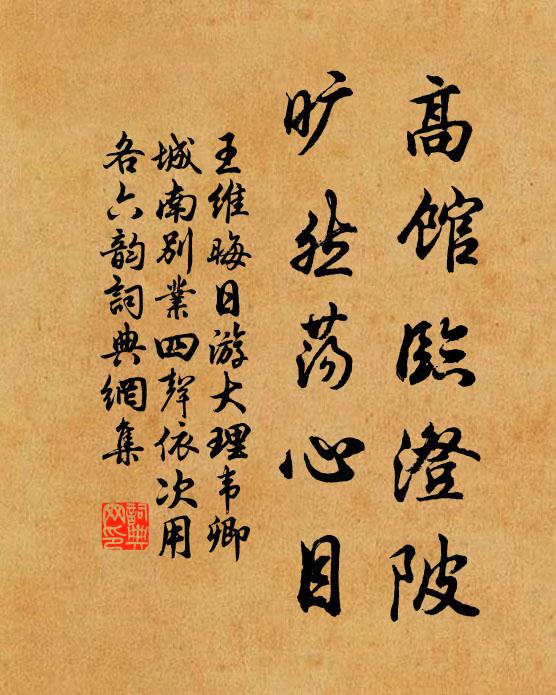 高馆临澄陂
旷然荡心目
王维晦日游大理韦卿
城南别业四声依次用
各六韵词典网集
词典网印